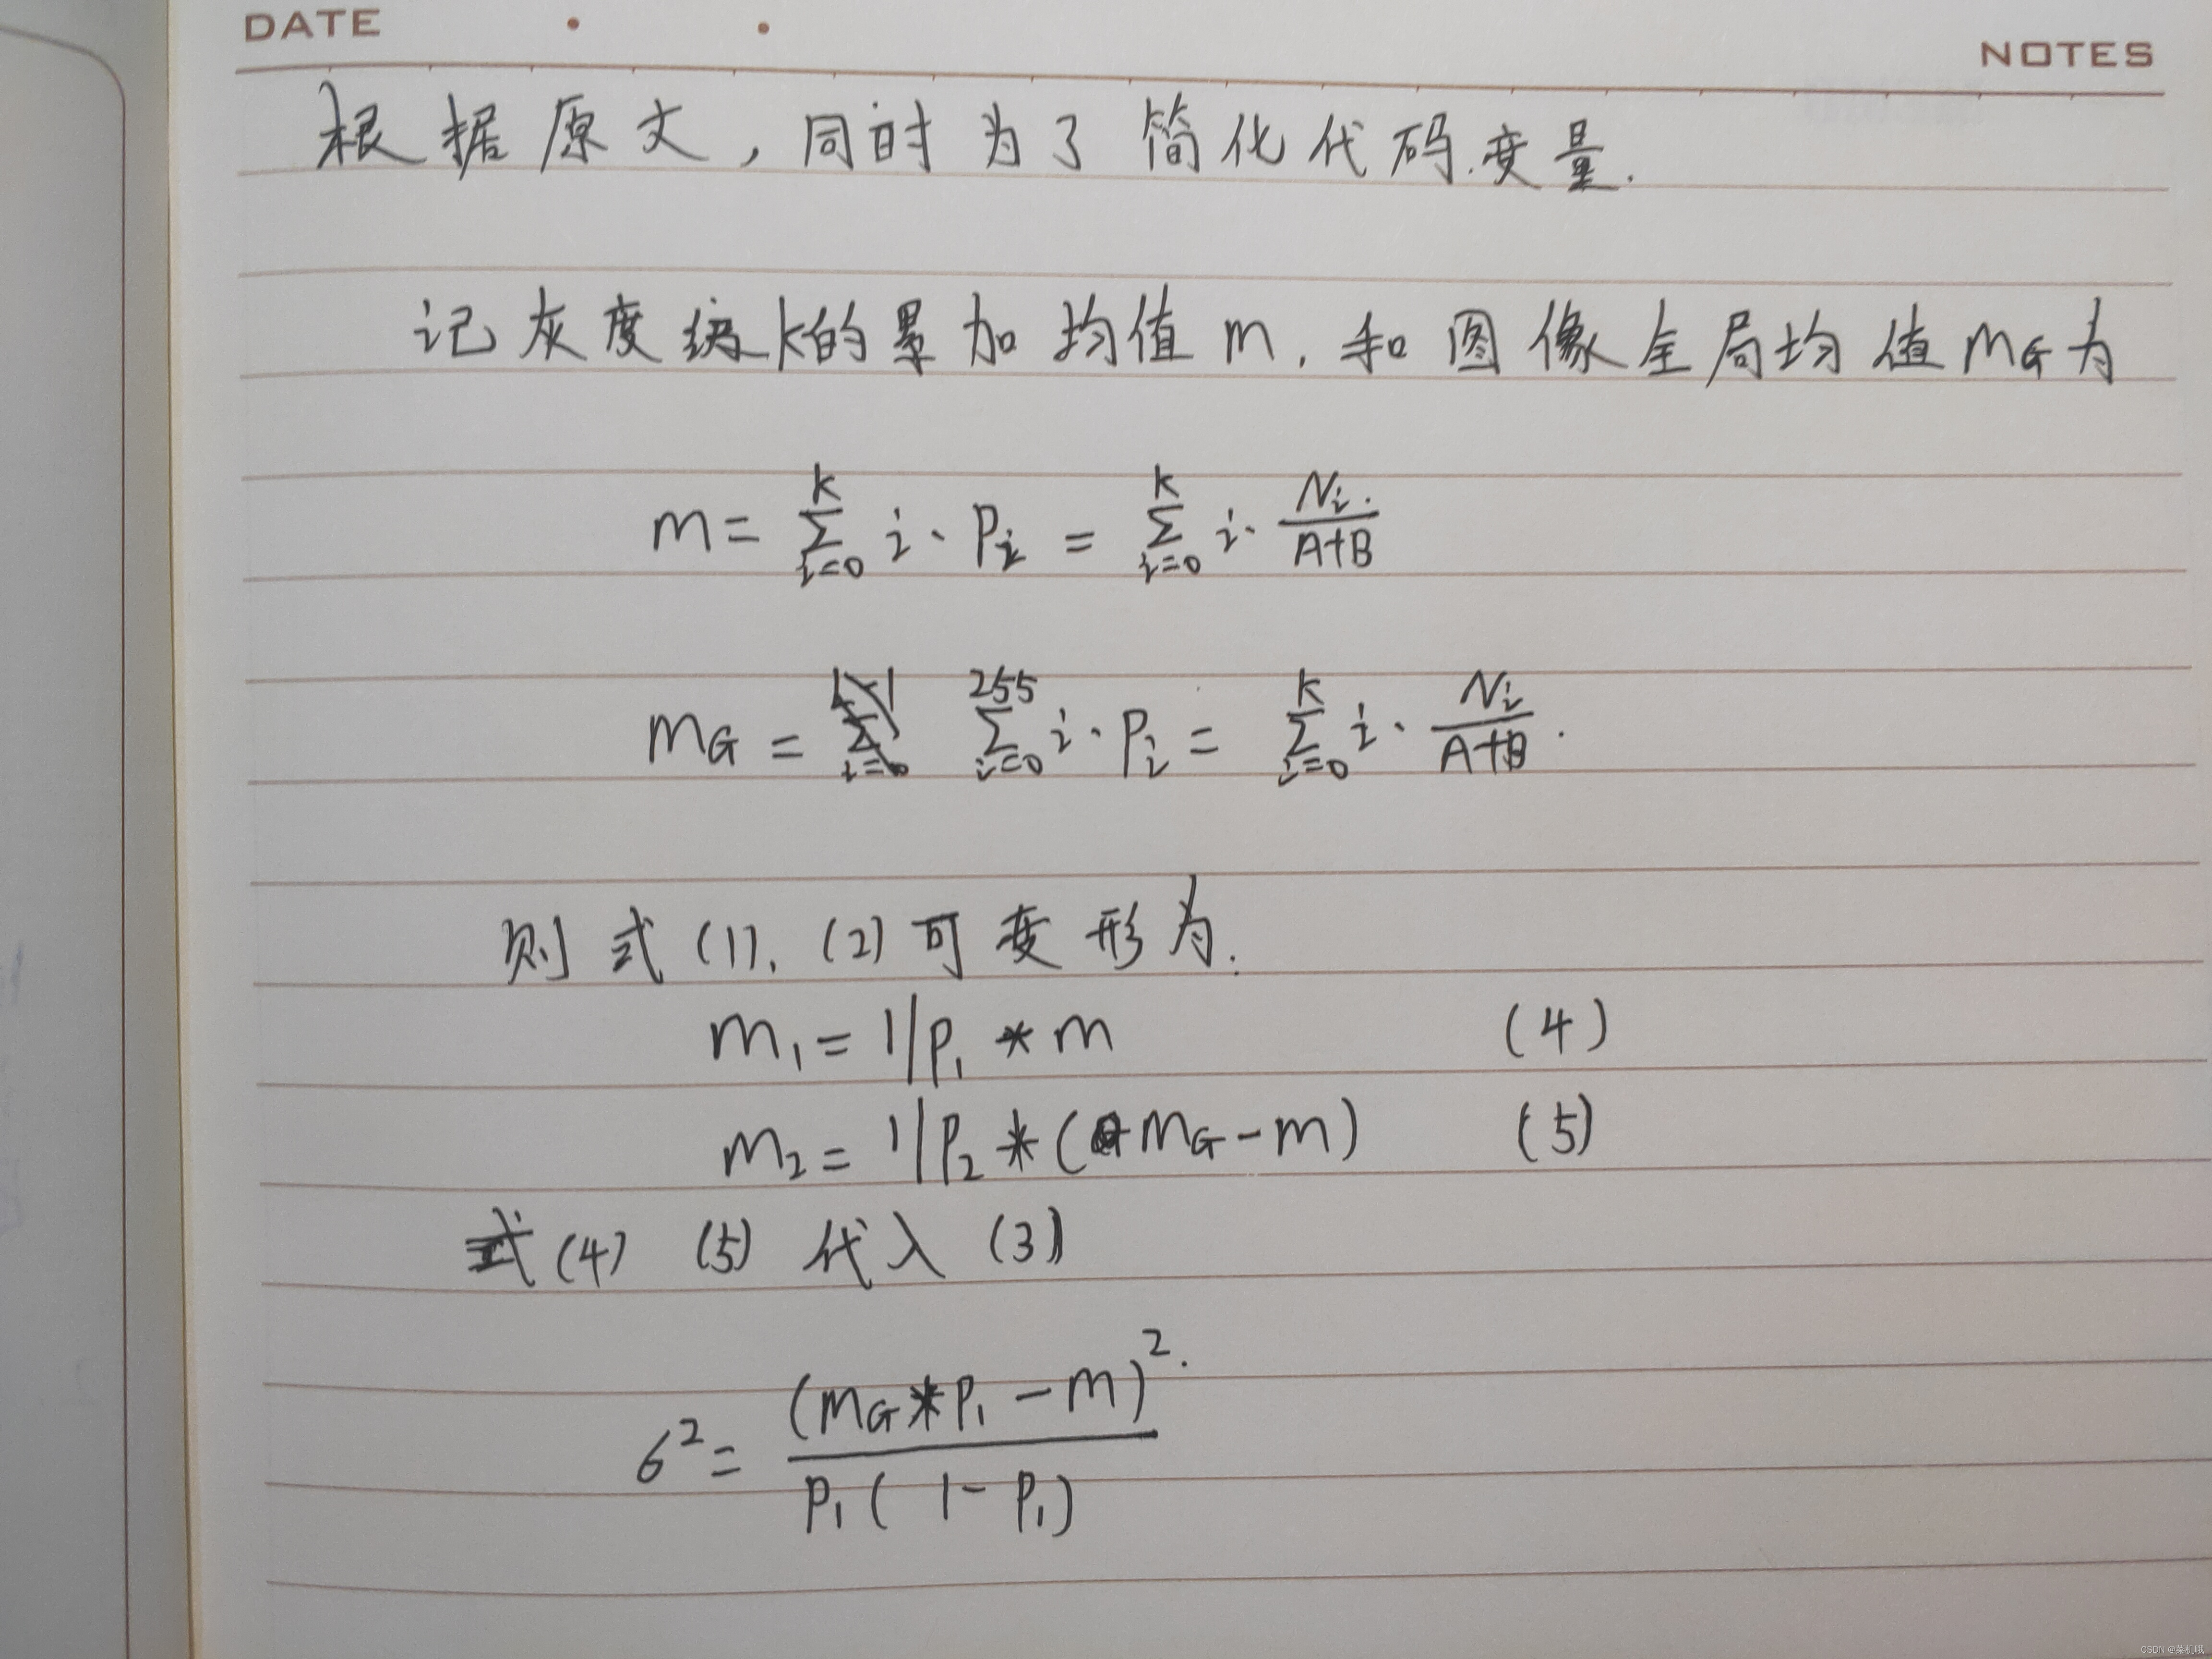 DATE
NOTES
根据原文,同时为了简化代码变量.
记灰度级k的累加均值m,和图像全局均值mG为
m = ∑_{i=0}^{k} i · Pi = ∑_{i=0}^{k} i · Ni/(A+B)
mG = ∑_{i=0}^{255} i · Pi = ∑_{i=0}^{k} i · Ni/(A+B) .
则式(1), (2)可变形为.
m1 = 1/P1 * m (4)
m2 = 1/P2 * (mG - m) (5)
式(4) (5) 代入 (3)
б² = (mG*P1 - m)² / P1( 1 - P1)
CSDN @菜机哦